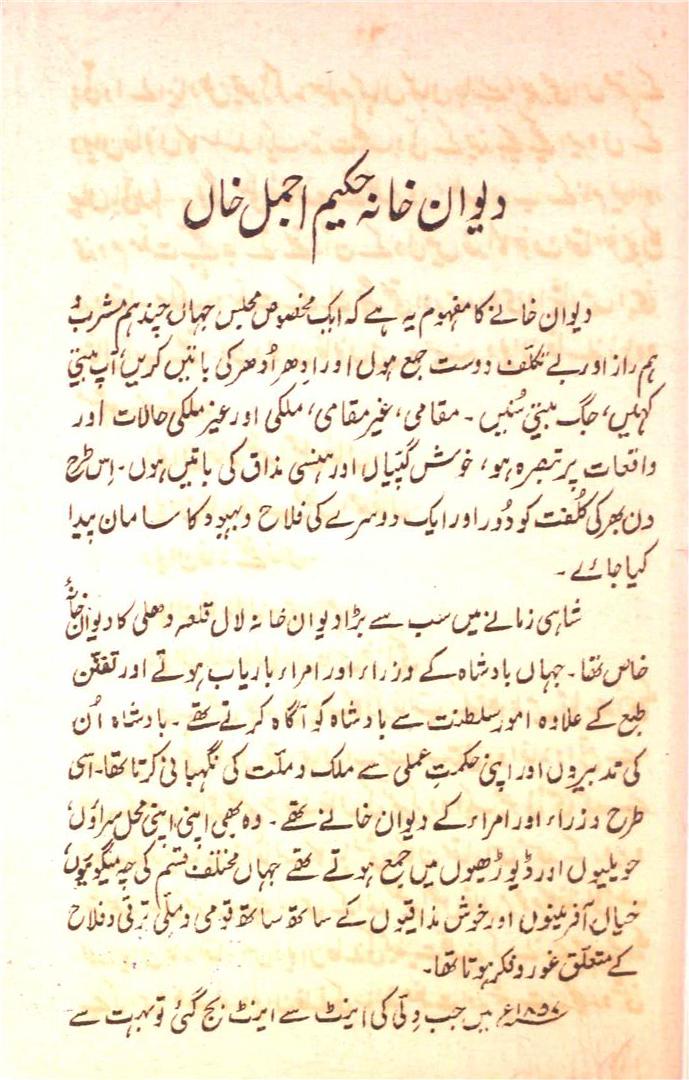 دیوان خانہ حکیم اجمل خاں
دیوان خانے کا مفہوم یہ ہے کہ ایک مخصوص مجلس جہاں چند ہم مشرب،
ہم راز اور بے تکلّف دوست جمع ہوں اور اِدھر اُدھر کی باتیں کریں، آپ بیتی
کہیں، جگ بیتی سُنیں۔ مقامی، غیر مقامی، ملکی اور غیر ملکی حالات اور
واقعات پر تبصرہ ہو، خوش گپیاں اور ہنسی مذاق کی باتیں ہوں۔ اِس طرح
دن بھر کی کُلفت کو دُور اور ایک دوسرے کی فلاح و بہبود کا سامان پیدا
کیا جائے۔
شاہی زمانے میں سب سے بڑا دیوان خانہ لال قلعہ دھلی کا دیوان خانۂ
خاص تھا۔ جہاں بادشاہ کے وزراء اور امراء باریاب ہوتے اور تفنّن
طبع کے علاوہ امورِ سلطنت سے بادشاہ کو آگاہ کرتے تھے۔ بادشاہ اُن
کی تدبیروں اور اپنی حکمتِ عملی سے ملک و ملّت کی نگہبانی کرتا تھا۔ اسی
طرح وزراء اور امراء کے دیوان خانے تھے۔ وہ بھی اپنی اپنی محل سراؤں،
حویلیوں اور ڈیوڑھیوں میں جمع ہوتے تھے جہاں مختلف قسم کی چہ میگوئیوں،
خیال آفرینوں اور خوش مذاقیوں کے ساتھ ساتھ قومی و ملّی ترقی و فلاح
کے متعلّق غور و فکر ہوتا تھا۔
۱۸۵۷ء میں جب دلّی کی اینٹ سے اینٹ بج گئی تو بہت سے